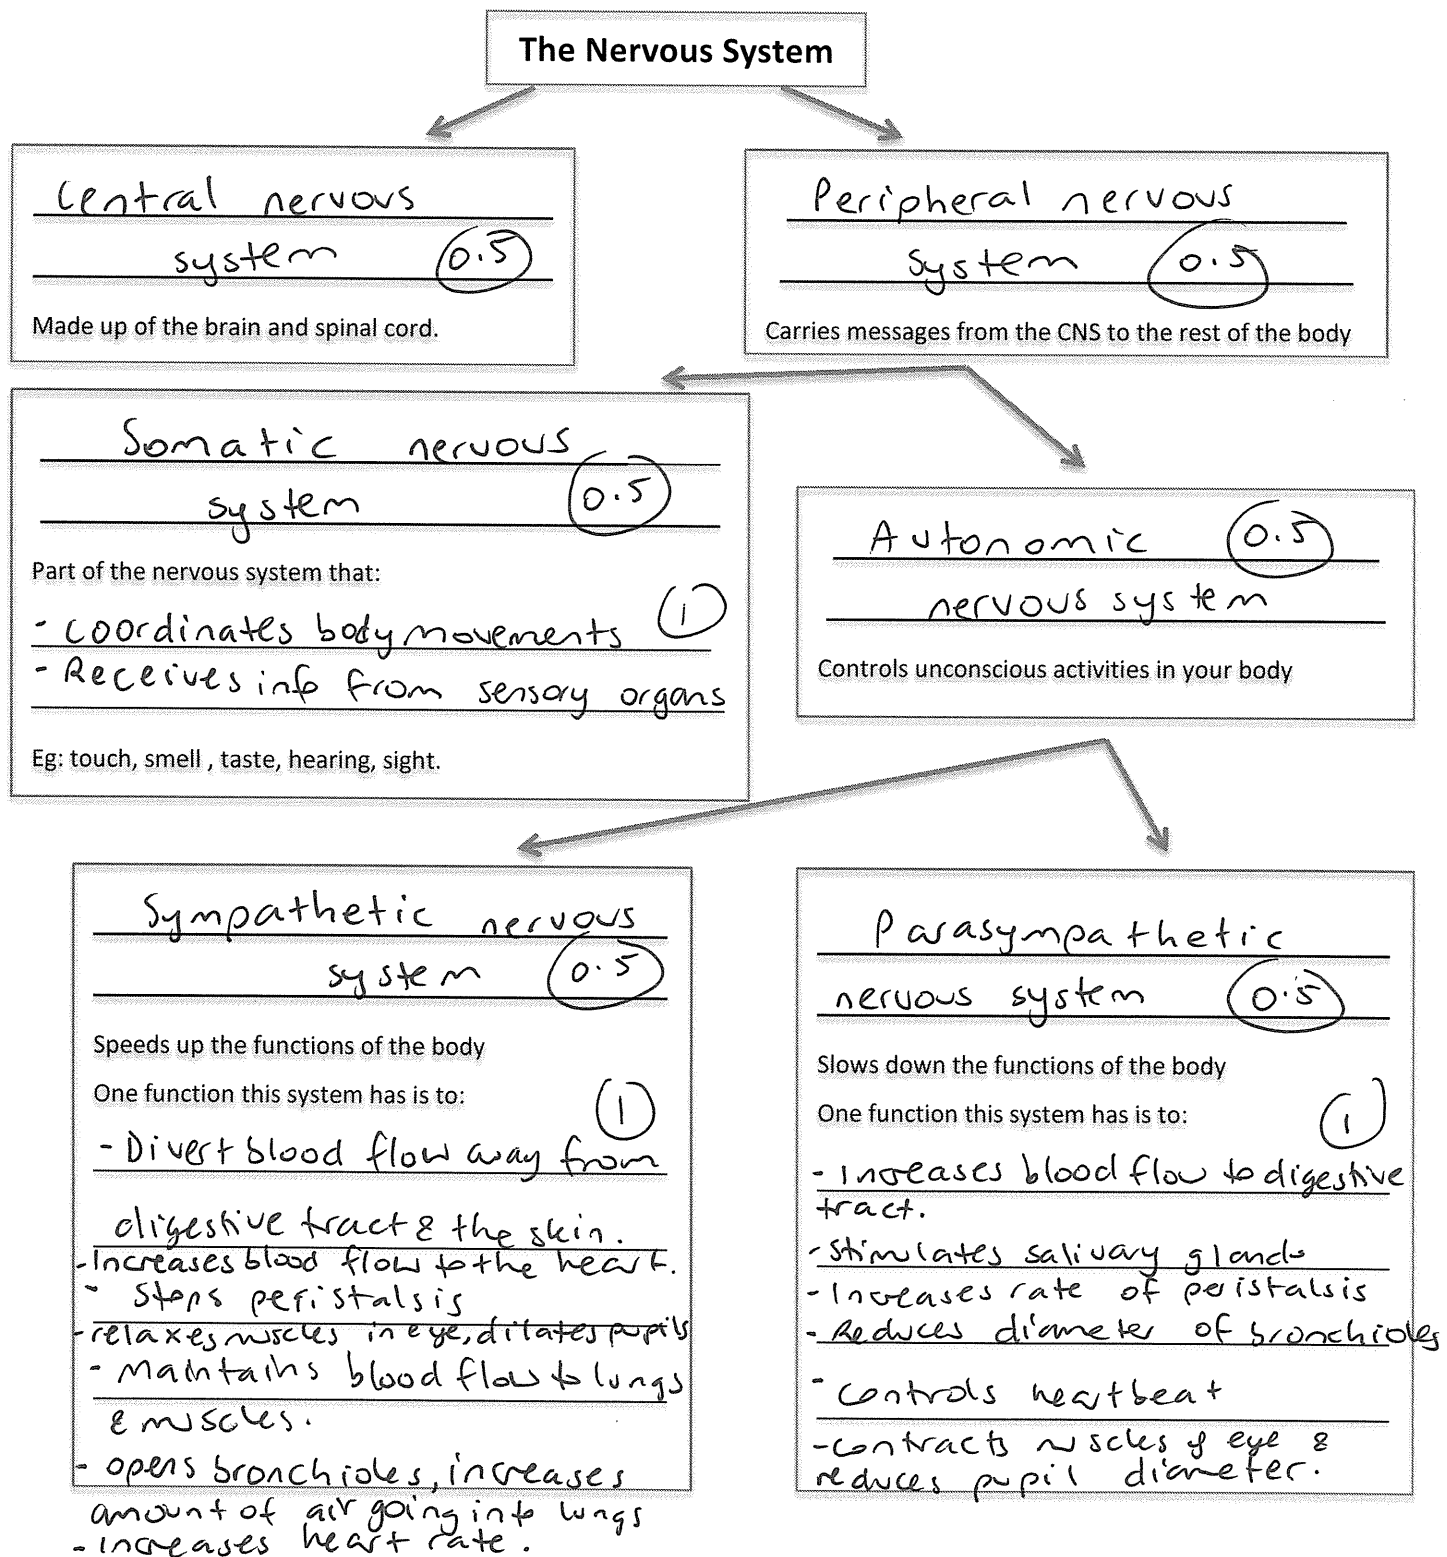 The Nervous System
Central nervous
system 0.5
Made up of the brain and spinal cord.
Peripheral nervous
system 0.5
Carries messages from the CNS to the rest of the body
Somatic nervous
system 0.5
Part of the nervous system that:
- coordinates body movements 1
- Receives info from sensory organs
Eg: touch, smell , taste, hearing, sight.
Autonomic 0.5
nervous system
Controls unconscious activities in your body
Sympathetic nervous
system 0.5
Speeds up the functions of the body
One function this system has is to: 1
- Divert blood flow away from
digestive tract & the skin.
- Increases blood flow to the heart.
- Stops peristalsis
- relaxes muscles in eye, dilates pupils
- Maintains blood flow to lungs
& muscles.
- opens bronchioles, increases
amount of air going into lungs
- increases heart rate.
Parasympathetic
nervous system 0.5
Slows down the functions of the body
One function this system has is to: 1
- Increases blood flow to digestive
tract.
- Stimulates salivary glands
- Increases rate of peristalsis
- Reduces diameter of bronchioles
- Controls heartbeat
- contracts muscles of eye &
reduces pupil diameter.